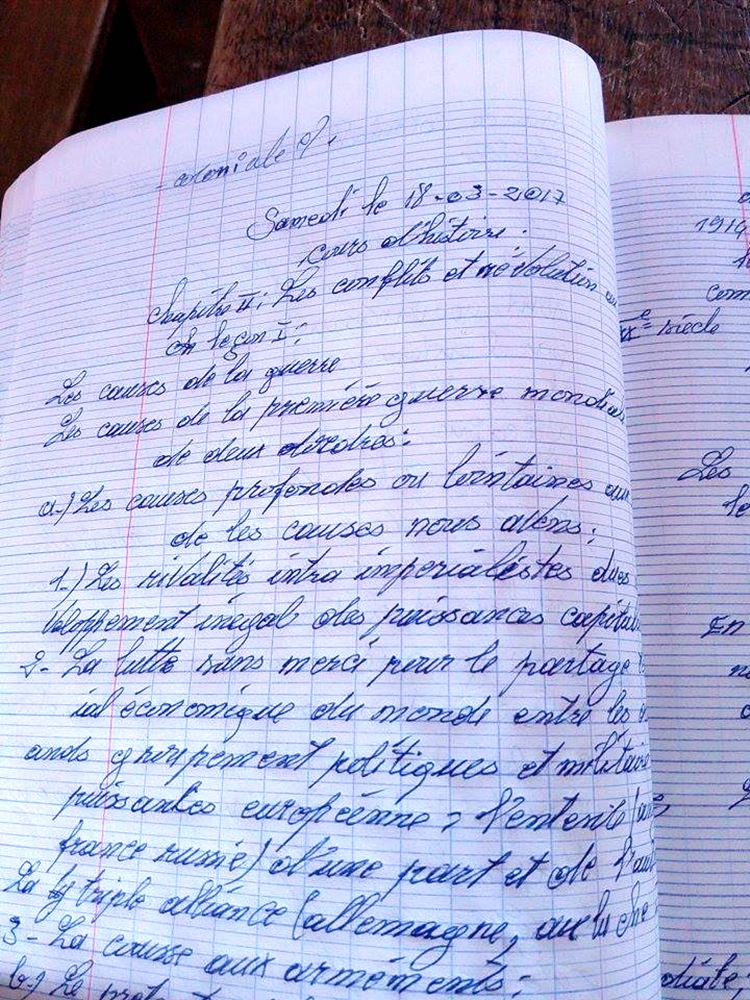 - coloniale
Samedi le 18-03-2017
Cours d'histoire:
Chapitre II: Les conflits et révolution au
leçon I:
Les causes de la guerre
Les causes de la première guerre mondiale
de deux ordres:
a-) Les causes profondes ou lointaines
de les causes nous avons:
1-) Les rivalités intra impérialistes dues
veloppement inégal des puissances capital
2- La lutte sans merci pour le partage
ial économique du monde entre les
ands groupement politiques et militaire
puissantes européenne, l'entente
france russie) d'une part et de l'aut
La triple alliance (allemagne,
3- La course aux armements:
b-) Le
1914
com
XXe siècle
Les
le
En